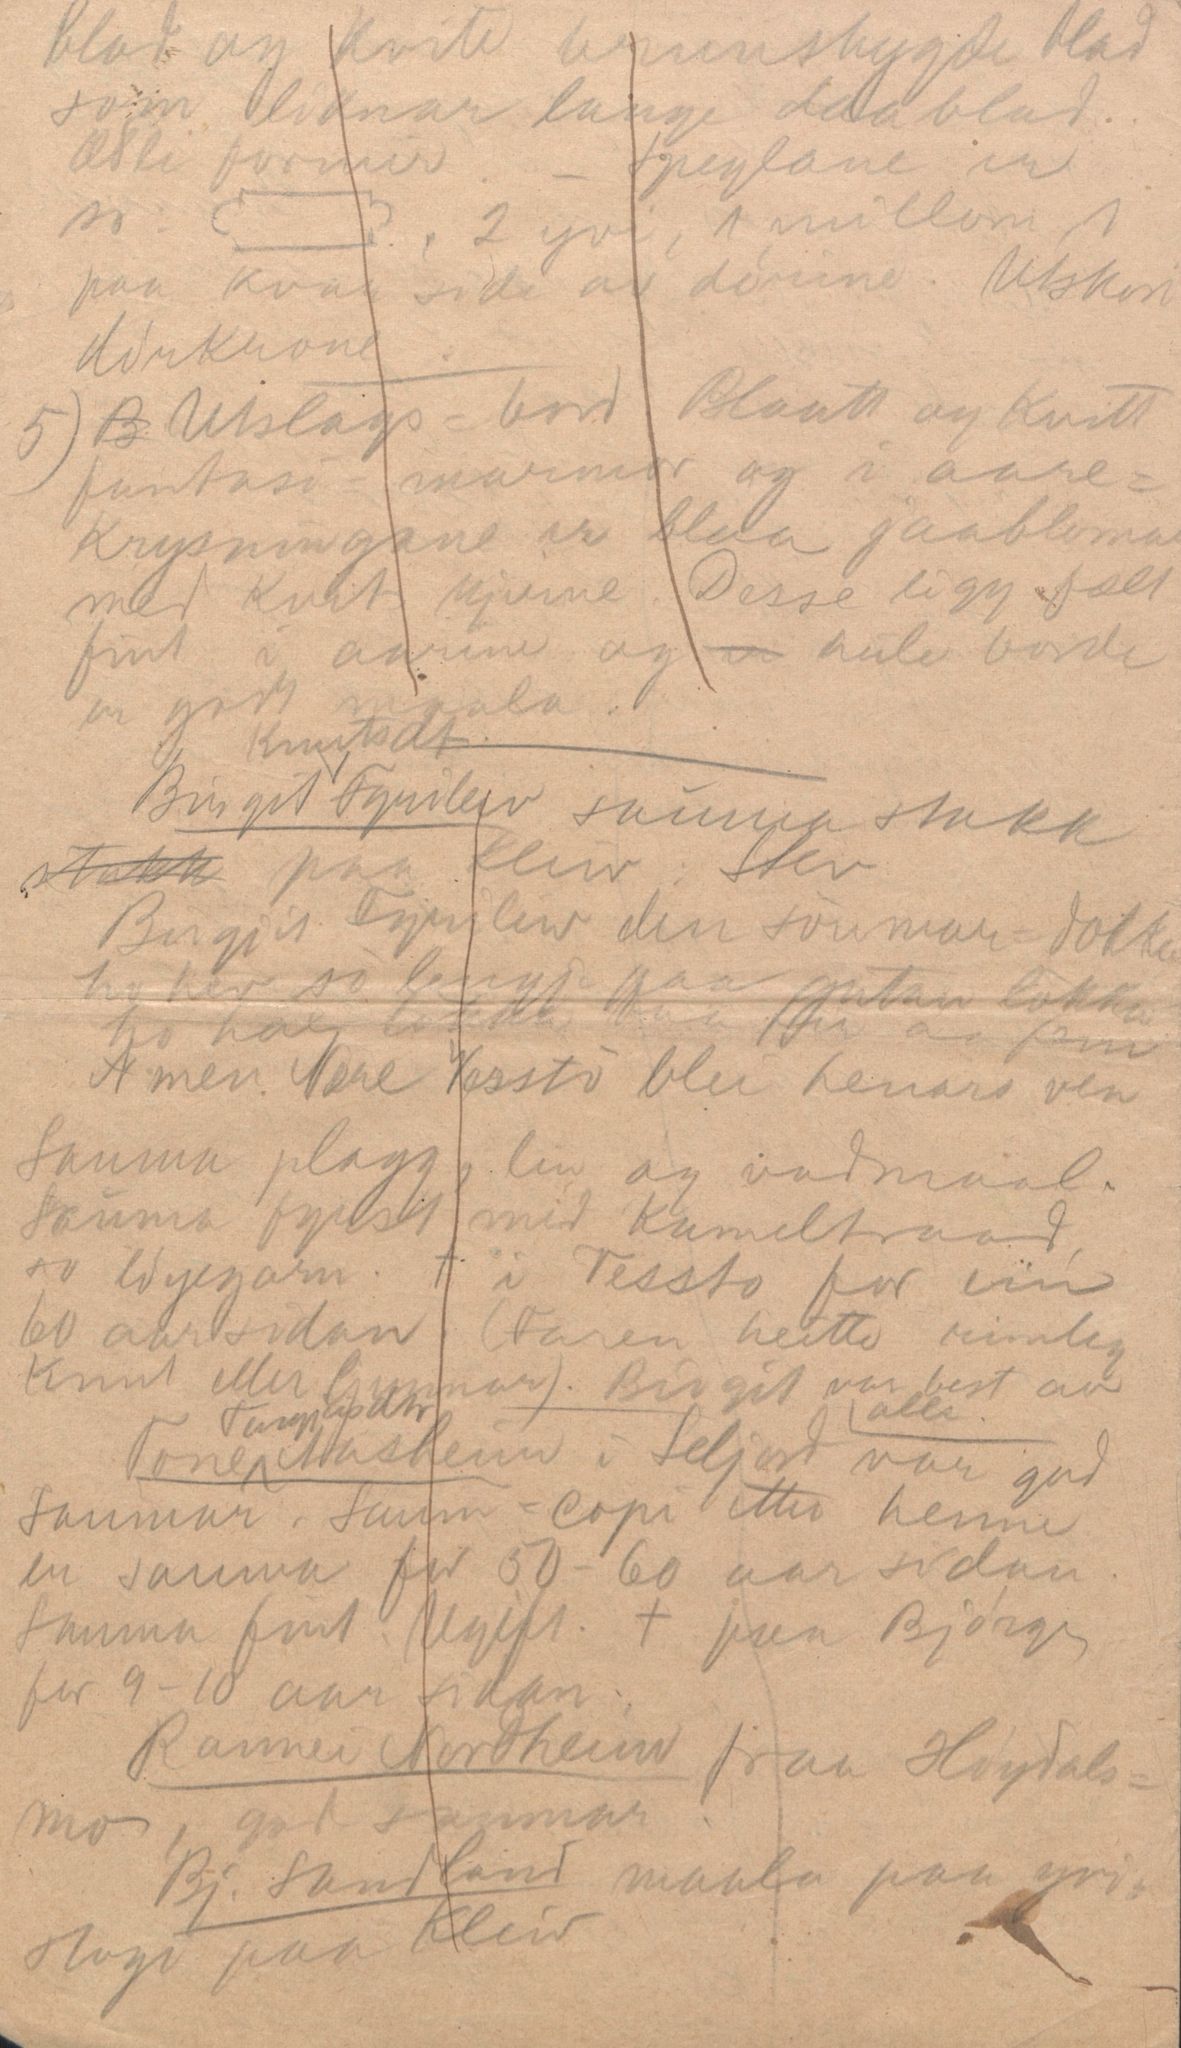 blad og kvite brunskygde blad
som liknar lange daablad.
Alle former. – Speglane er
so: , 2 yvi, 1 millom 1
paa kvar side av dörine. Utskori
dörkrone.
5) B Utslags=bord Blaatt og kvitt
fantasi-marmor og i aare=
krysningane er blaa
med kvit kjerne. Desse ligg
fint i aarine og er heile borde
er godt maala.
Knutsdt.
Birgit Fyrileiv sauma stakk
stakk paa Kleiv. Stev
Birgit Fyrileiv den saumar=dokka
ho hev so lengje paa gutan lokka
ho
Amen. Nere Vesstö blei henars ven
Sauma plagg, lin og vadmaal.
Sauma fyrst med Kameltraad,
so . † i Tessto for ein
60 aar sidan. (Faren heitte rimleg
Knut eller Gunnar). Birgit var best av
alle.
Tone Aasheim i Seljord var god
saumar. Saum-copi etter henne
er sauma for 50-60 aar sidan.
Sauma fint. Ugift. † paa Björge
for 9-10 aar sidan.
Rannei Nordheim fraa Höydals=
mo, god saumar.
Bj. Sandland maala paa yvi=
stogo paa Kleiv